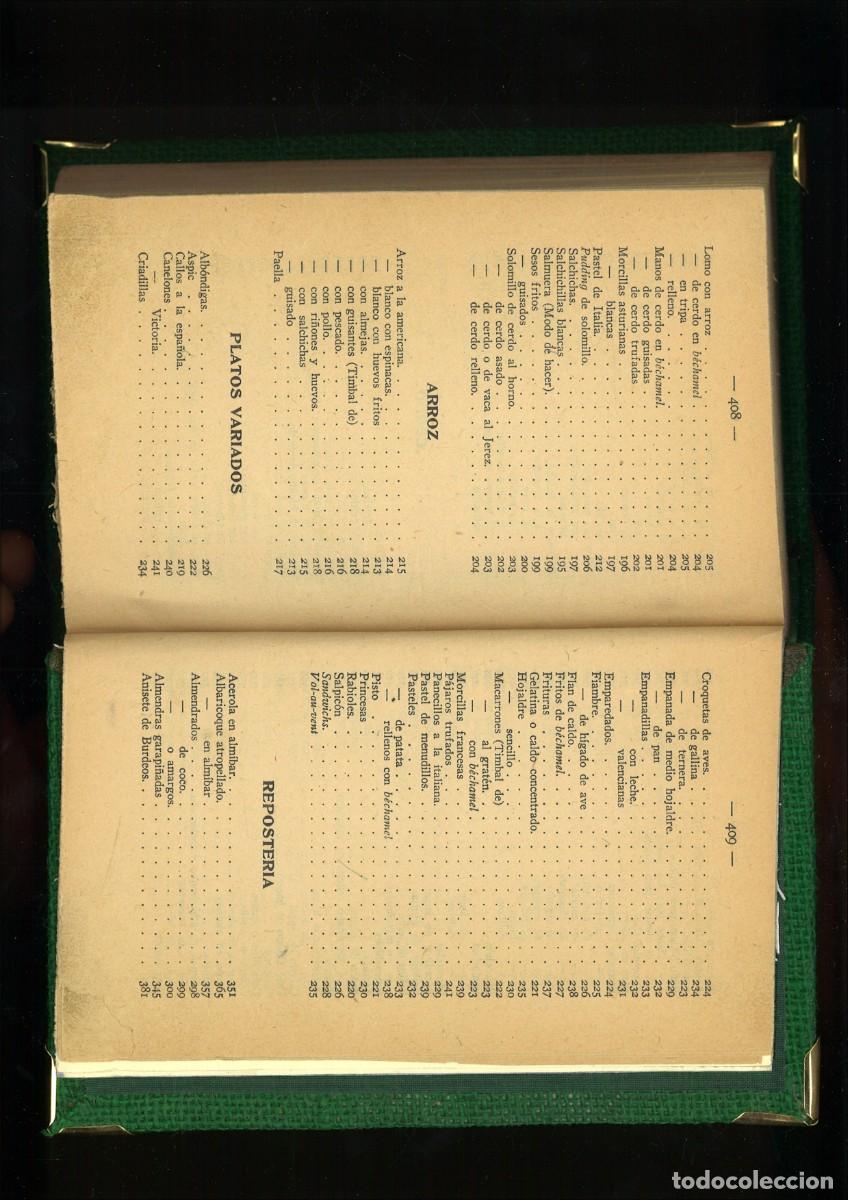 — 408 —
Lomo con arroz . . . . . . . . . . 205
— de cerdo en béchamel . . . . . . . . . . 204
— en tripa . . . . . . . . . . 205
— relleno. . . . . . . . . . 204
Manos de cerdo en béchamel. . . . . . . . . . 201
— de cerdo guisadas . . . . . . . . . . 201
— de cerdo trufadas . . . . . . . . . . 202
Morcillas asturianas . . . . . . . . . . 196
— blancas . . . . . . . . . . 197
Pastel de Italia. . . . . . . . . . 212
Pudding de solomillo. . . . . . . . . . 206
Salchichas. . . . . . . . . . 197
Salchichillas blancas . . . . . . . . . . 195
Salmuera (Modo de hacer). . . . . . . . . . 199
Sesos fritos . . . . . . . . . . 199
— guisados . . . . . . . . . . 200
Solomillo de cerdo al horno. . . . . . . . . . 203
— de cerdo asado . . . . . . . . . . 202
— de cerdo o de vaca al Jerez. . . . . . . . . . 203
— de cerdo relleno. . . . . . . . . . 204
ARROZ
Arroz a la americana. . . . . . . . . . 215
— blanco con espinacas. . . . . . . . . . 214
— blanco con huevos fritos . . . . . . . . . . 213
— con almejas. . . . . . . . . . 214
— con guisantes (Timbal de) . . . . . . . . . . 218
— con pescado. . . . . . . . . . 216
— con pollo. . . . . . . . . . 216
— con riñones y huevos. . . . . . . . . . 218
— con salchichas . . . . . . . . . . 215
— guisado . . . . . . . . . . 213
Paella . . . . . . . . . . 217
PLATOS VARIADOS
Albóndigas. . . . . . . . . . 226
Aspic . . . . . . . . . . 222
Callos a la española. . . . . . . . . . 219
Canelones . . . . . . . . . . 240
— Victoria. . . . . . . . . . 241
Criadillas . . . . . . . . . . 234
— 409 —
Croquetas de aves. . . . . . . . . . 224
— de gallina . . . . . . . . . . 234
— de ternera. . . . . . . . . . 223
Empanada de medio hojaldre. . . . . . . . . . 229
— de pan . . . . . . . . . . 232
Empanadillas . . . . . . . . . . 233
— con leche. . . . . . . . . . 232
— valencianas . . . . . . . . . . 231
Emparedados. . . . . . . . . . 224
Fiambre. . . . . . . . . . 225
— de hígado de ave . . . . . . . . . . 226
Flan de caldo. . . . . . . . . . 238
Fritos de béchamel. . . . . . . . . . 227
Frituras . . . . . . . . . . 237
Gelatina o caldo concentrado. . . . . . . . . . 221
Hojaldre . . . . . . . . . . 235
— sencillo . . . . . . . . . . 230
Macarrones (Timbal de) . . . . . . . . . . 222
— al gratén. . . . . . . . . . 223
— con béchamel . . . . . . . . . . 223
Morcillas francesas . . . . . . . . . . 239
Pájaros trufados . . . . . . . . . . 241
Panecillos a la italiana. . . . . . . . . . 229
Pastel de menudillos. . . . . . . . . . 239
Pasteles . . . . . . . . . . 232
— de patata . . . . . . . . . . 233
— rellenos con béchamel . . . . . . . . . . 238
Pisto . . . . . . . . . . 221
Princesas . . . . . . . . . . 230
Rabioles. . . . . . . . . . 220
Salpicón . . . . . . . . . . 226
Sandwichs. . . . . . . . . . 228
Vol-au-vent . . . . . . . . . . 235
REPOSTERIA
Acerola en almíbar. . . . . . . . . . 351
Albaricoque atropellado. . . . . . . . . . 365
— en almíbar . . . . . . . . . . 357
Almendrados . . . . . . . . . . 298
— de coco. . . . . . . . . . 299
— o amargos. . . . . . . . . . 300
Almendras garapiñadas . . . . . . . . . . 345
Anisete de Burdeos. . . . . . . . . . 381
todocoleccion